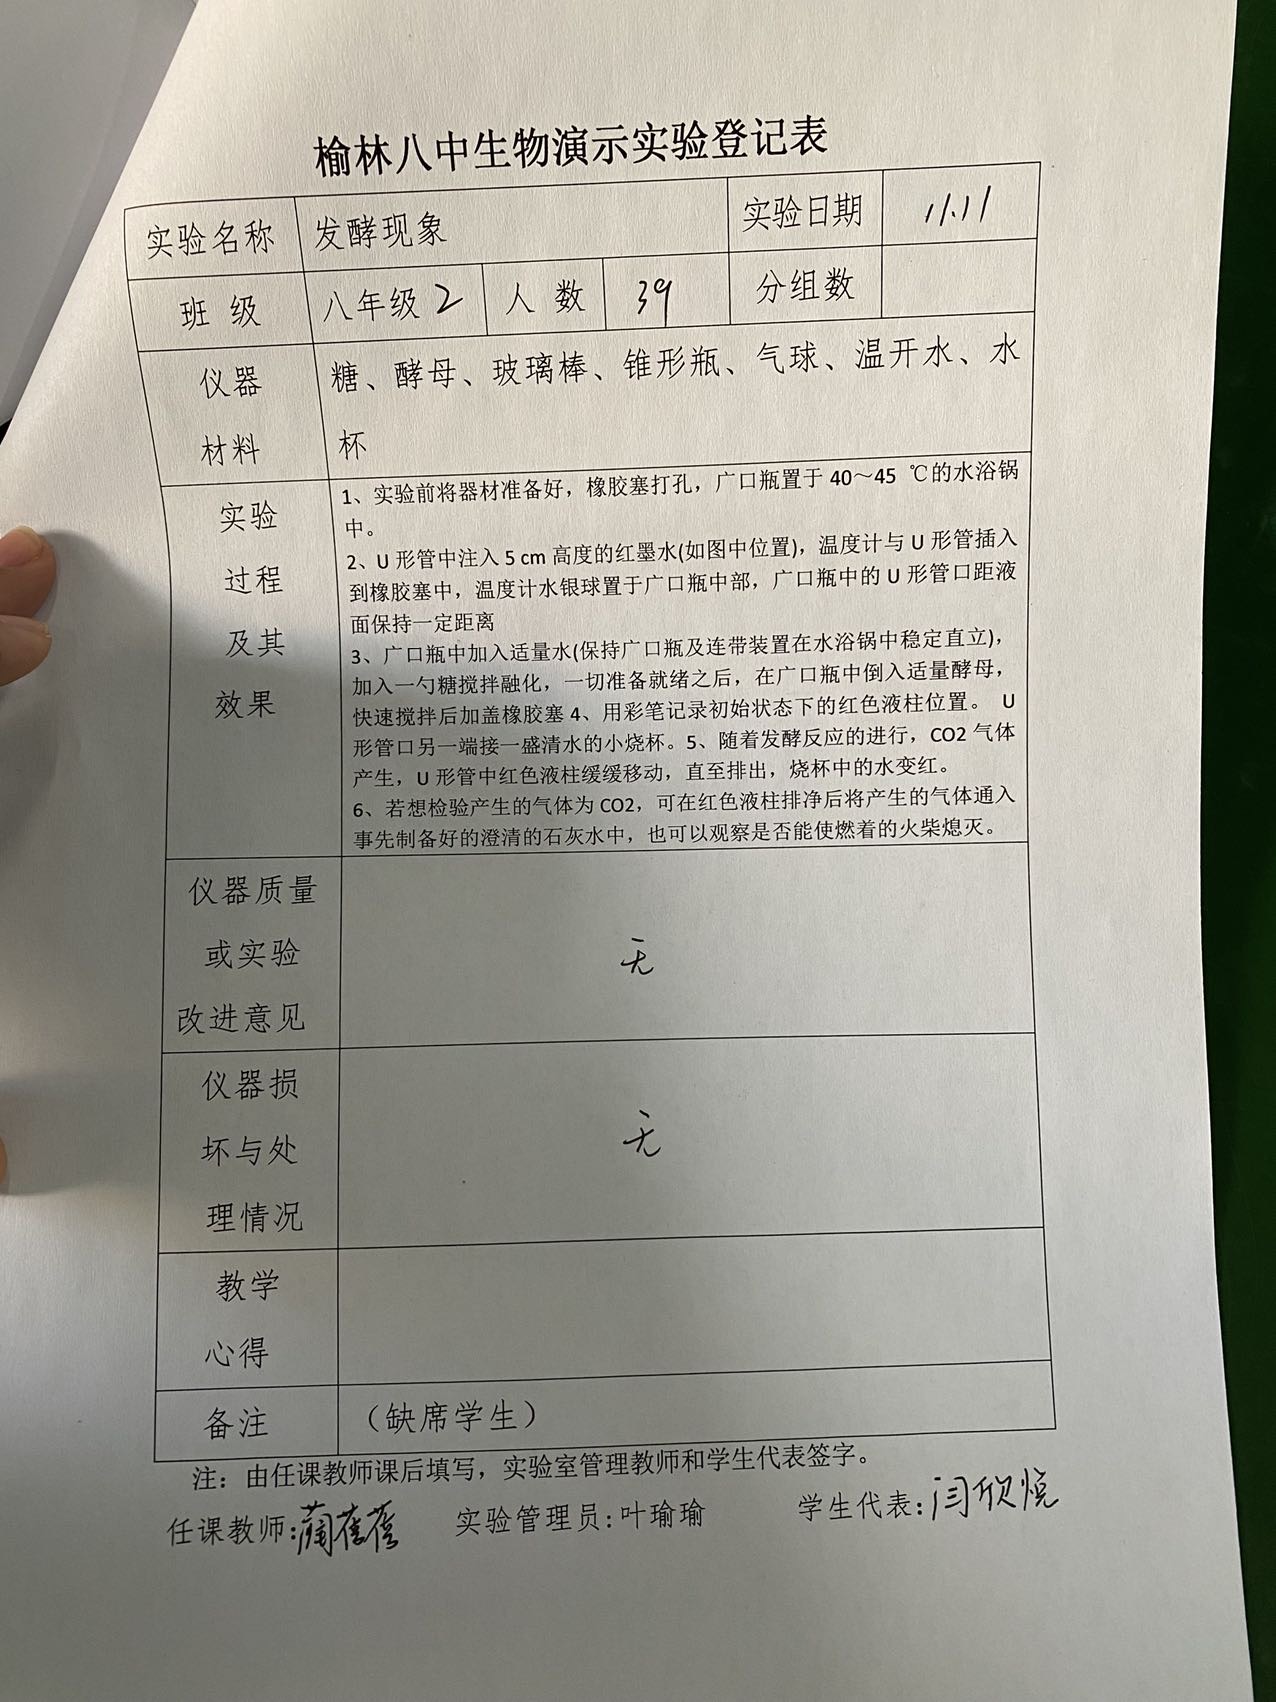 榆林八中生物演示实验登记表
实验名称 发酵现象 实验日期 11.11
班 级 八年级 2 人 数 39 分组数
仪器 材料
糖、酵母、玻璃棒、锥形瓶、气球、温开水、水
杯
实验 过程 及其 效果
1、实验前将器材准备好，橡胶塞打孔，广口瓶置于 40～45 ℃的水浴锅
中。
2、U 形管中注入 5 cm 高度的红墨水(如图中位置)，温度计与 U 形管插入
到橡胶塞中，温度计水银球置于广口瓶中部，广口瓶中的 U 形管口距液
面保持一定距离
3、广口瓶中加入适量水(保持广口瓶及连带装置在水浴锅中稳定直立)，
加入一勺糖搅拌融化，一切准备就绪之后，在广口瓶中倒入适量酵母，
快速搅拌后加盖橡胶塞 4、用彩笔记录初始状态下的红色液柱位置。 U
形管口另一端接一盛清水的小烧杯。5、随着发酵反应的进行，CO2 气体
产生，U 形管中红色液柱缓缓移动，直至排出，烧杯中的水变红。
6、若想检验产生的气体为 CO2，可在红色液柱排净后将产生的气体通入
事先制备好的澄清的石灰水中，也可以观察是否能使燃着的火柴熄灭。
仪器质量
或实验
改进意见
无
仪器损
坏与处
理情况
无
教学
心得
备注 （缺席学生）
注：由任课教师课后填写，实验室管理教师和学生代表签字。
任课教师: 实验管理员:叶瑜瑜 学生代表:闫欣悦